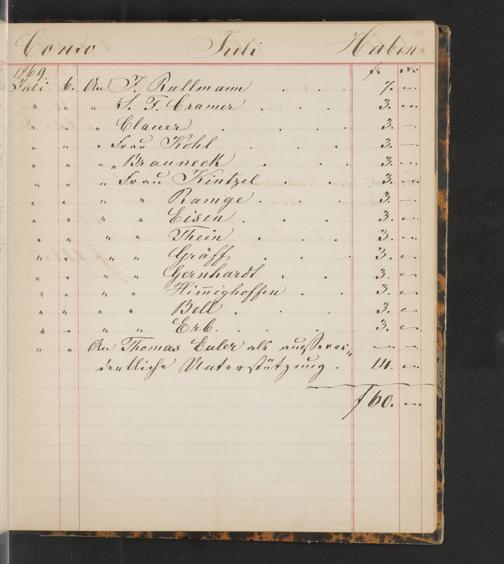 Conto Juli Haben
1869 fr. xr.
Juli 6. An J. Rullmann . . . 7. —
" " " L. F. Cramer . . . 3. —
" " " Clauer . . . 3. —
" " " Frau Kohl . . . 3. —
" " " " Brauneck . . . 3. —
" " " Frau Kintzel . . . 3. —
" " " " Ramge . . . 3. —
" " " " Eisen . . . 3. —
" " " " Thein . . . 3. —
" " " " Gräff . . . 3. —
" " " " Gernhardt . . . 3. —
" " " " Him̅ighoffen . . . 3. —
" " " " Bell . . . 3. —
" " " " Erb . . . 3. —
" An Thomas Euler als außeror= — —
dentliche Unterstützung . 14. —
f 60. —